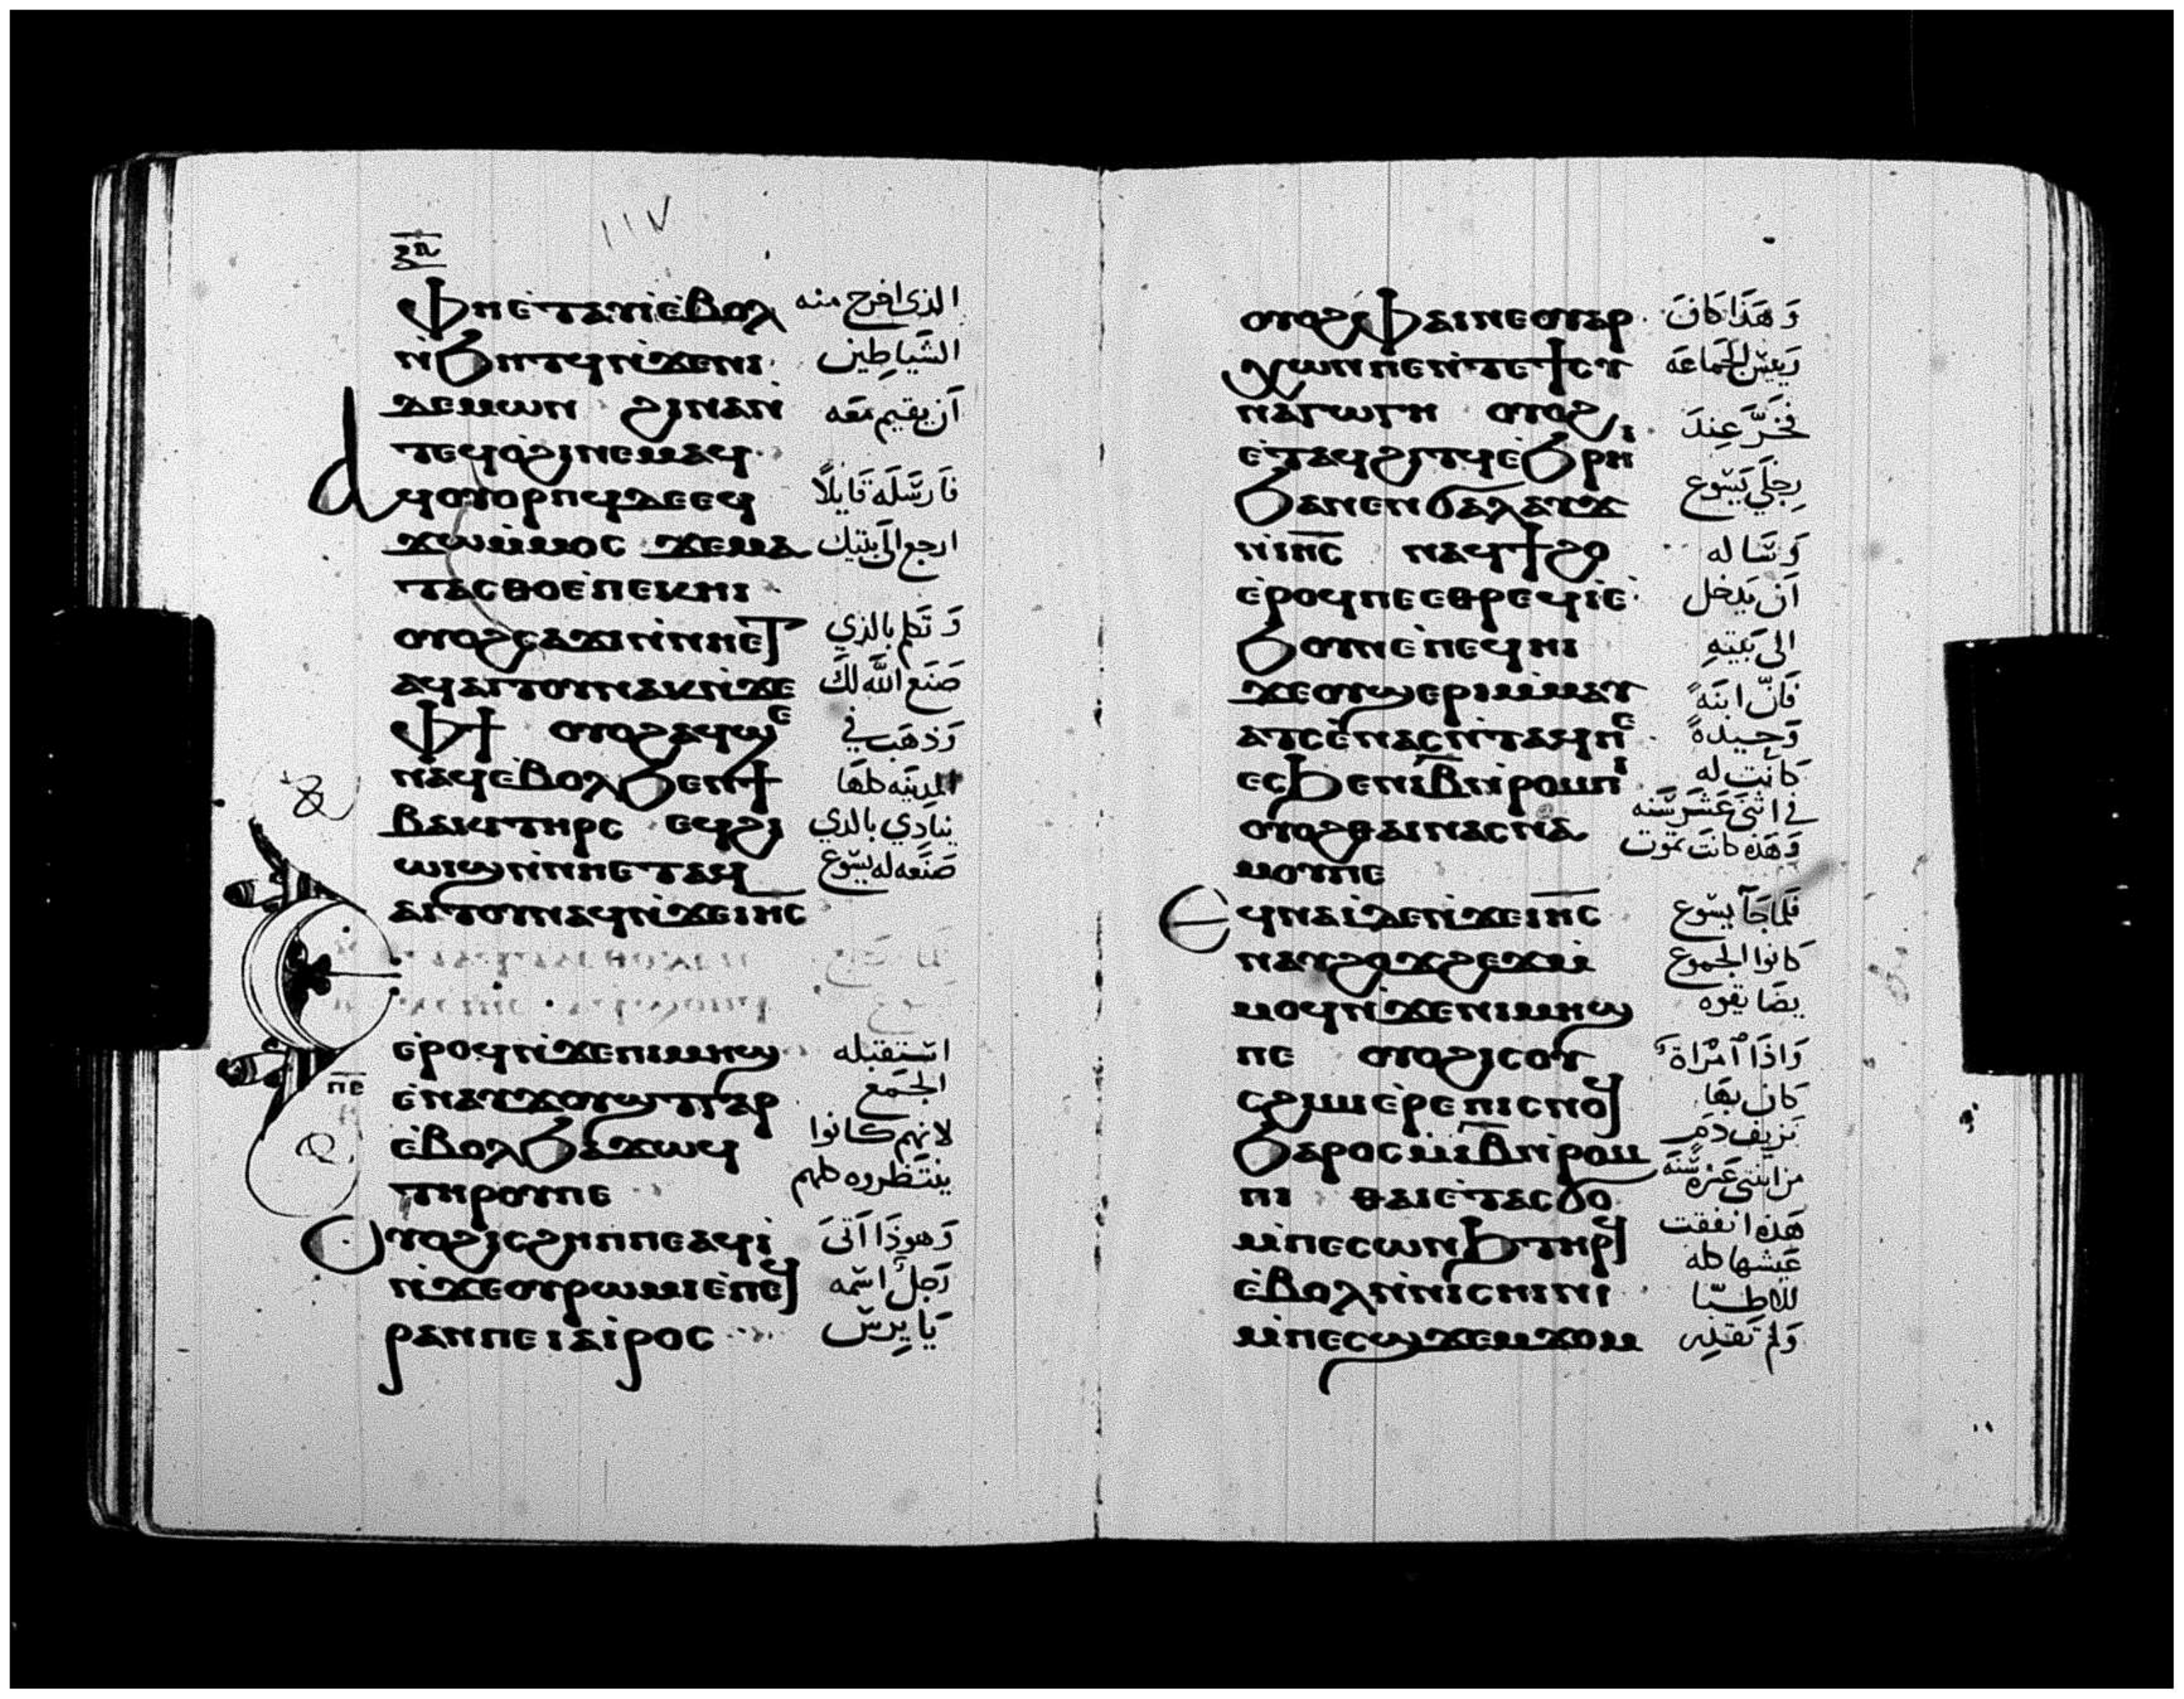 ١١٧
ⲫⲏⲉⲧⲁⲛⲓⲉ̀ⲃⲟⲗ الذي اخرج منه
ⲛ̀ϧⲏⲧϥⲛ̀ϫⲉⲛⲓ الشَّياطِين
ⲇⲉⲙⲱⲛ ϩⲓⲛⲁⲛ̀ اَن يقيم مَعَه
ⲧⲉϥⲟ̀ϩⲓⲛⲉⲙⲁϥ
ⲁϥⲟⲩⲟⲣⲡϥⲇⲉⲉϥ فَارسَله قَايلاً
ϫⲱⲙ̀ⲙⲟⲥ ϫⲉⲙⲁ ارجع الَى بَيتِك
ⲧⲁⲥⲑⲟⲉ̀ⲡⲉⲕⲏⲓ
ⲟⲩⲟϩⲥⲁϫⲓⲛ̀ⲛⲏⲉⲧ وَتَكلم بالذي
ⲁϥⲁⲓⲧⲟⲩⲛⲁⲕⲛ̀ϫⲉ صَنَع اللَّه لَكَ
ⲫϯ ⲟⲩⲟϩⲁϥϣⲉ وَذهَب في
ⲛⲁϥⲉ̀ⲃⲟⲗϧⲉⲛϯ المدينَه كلهَا
ⲃⲁⲕⲓⲧⲏⲣⲥ ⲉϥϩⲓ ينَادِي بالذي
ⲱⲓϣⲛ̀ⲛⲏⲉⲧⲁϥ صَنَعه له يسُوع
ⲁⲓⲧⲟⲩⲛⲁϥⲛ̀ϫⲉⲓⲏⲥ
ⲉ̀ⲣⲟϥⲛ̀ϫⲉⲡⲓⲙⲏϣ استقبله
ⲡⲉ
ⲉ̀ⲛⲁⲩϫⲟⲩϣⲧⲅⲁⲣ الجَمع
ⲉ̀ⲃⲟⲗϧⲁϫⲱϥ لانهم كانوا
ⲧⲏⲣⲟⲩⲡⲉ ينتَظروه كلهم
ⲟⲩⲟϩⲓⲥϩⲏⲡⲡⲉⲁϥⲓ̀ وَهوذَا اَتى
ⲛ̀ϫⲉⲟⲩⲣⲱⲙⲓⲉ̀ⲡⲉϥ رَجلٌ اسمه
ⲣⲁⲛⲡⲉⲓⲁⲓ̀ⲣⲟⲥ يَا يرس
ⲟⲩⲟϩⲫⲁⲓⲛⲉⲟⲩⲁⲣ وَهَذَا كَانَ
ⲭⲱⲛⲡⲉⲛ̀ⲧⲉϯⲥⲩ رَييس الجَماعَه
ⲛⲁⲅⲱⲅⲏ ⲟⲩⲟϩ فَخَرَّ عِندَ
ⲉ̀ⲧⲁϥϩⲓⲧϥⲉ̀ϧⲣⲏⲓ
ϧⲁⲛⲉⲛϭⲁⲗⲁⲩϫ رِجلَي يَسُوع
ⲛ̀ⲓⲏⲥ ⲛⲁϥϯϩⲟ وَسَاله
ⲉ̀ⲣⲟϥⲡⲉⲉⲑⲣⲉϥⲓ̀ⲉ̀ اَن يَدخل
ϧⲟⲩⲛⲉ̀ⲡⲉϥⲏⲓ الى بَيتهِ
ϫⲉⲟⲩϣⲉⲣⲓⲙ̀ⲙⲁⲩ فَانّ ابنَهً
ⲁⲧⲥⲉ̀ⲛⲁⲥⲛ̀ⲧⲁϥⲡⲉ وَحيدةً
ⲉⲥϧⲉⲛⲓⲃⲛ̀ⲣⲟⲙⲡⲓ كانَت له
في اثنَى عَشَر سَنه
ⲟⲩⲟϩⲑⲁⲓⲛⲁⲥⲛⲁ وَهَذه كانَت تموت
ⲙⲟⲩⲡⲉ
ⲉϥⲛⲁⲓ̀ⲇⲉⲛ̀ϫⲉⲓⲏⲥ فَلما جَآ يسُوع
ⲛⲁⲩϩⲟϫϩⲉϫⲙ̀ كَانوا الجموع
ⲙⲟϥⲛ̀ϫⲉⲛⲓⲙⲏϣ يضَايقوه
ⲡⲉ ⲟⲩⲟϩⲓⲥⲟⲩ وَاذَا امْرَاة
ⲥϩⲓⲙⲓⲉ̀ⲣⲉⲡⲓⲥⲛⲟϥ كان بهَا
ϧⲁⲣⲟⲥⲙ̀ⲓⲃⲛ̀ⲣⲟⲙ نزيف دَم
ⲡⲓ ⲑⲁⲓⲉ̀ⲧⲁⲥϭⲟ هَذه انفقت
ⲙ̀ⲡⲉⲥⲱⲛϧⲧⲏⲣϥ عَيشها كله
ⲉ̀ⲃⲟⲗⲛ̀ⲛⲓⲥⲏⲓⲛⲓ للاطبّا
ⲙ̀ⲡⲉⲥϣϫⲉⲙϫⲟⲙ وَلم تقدر